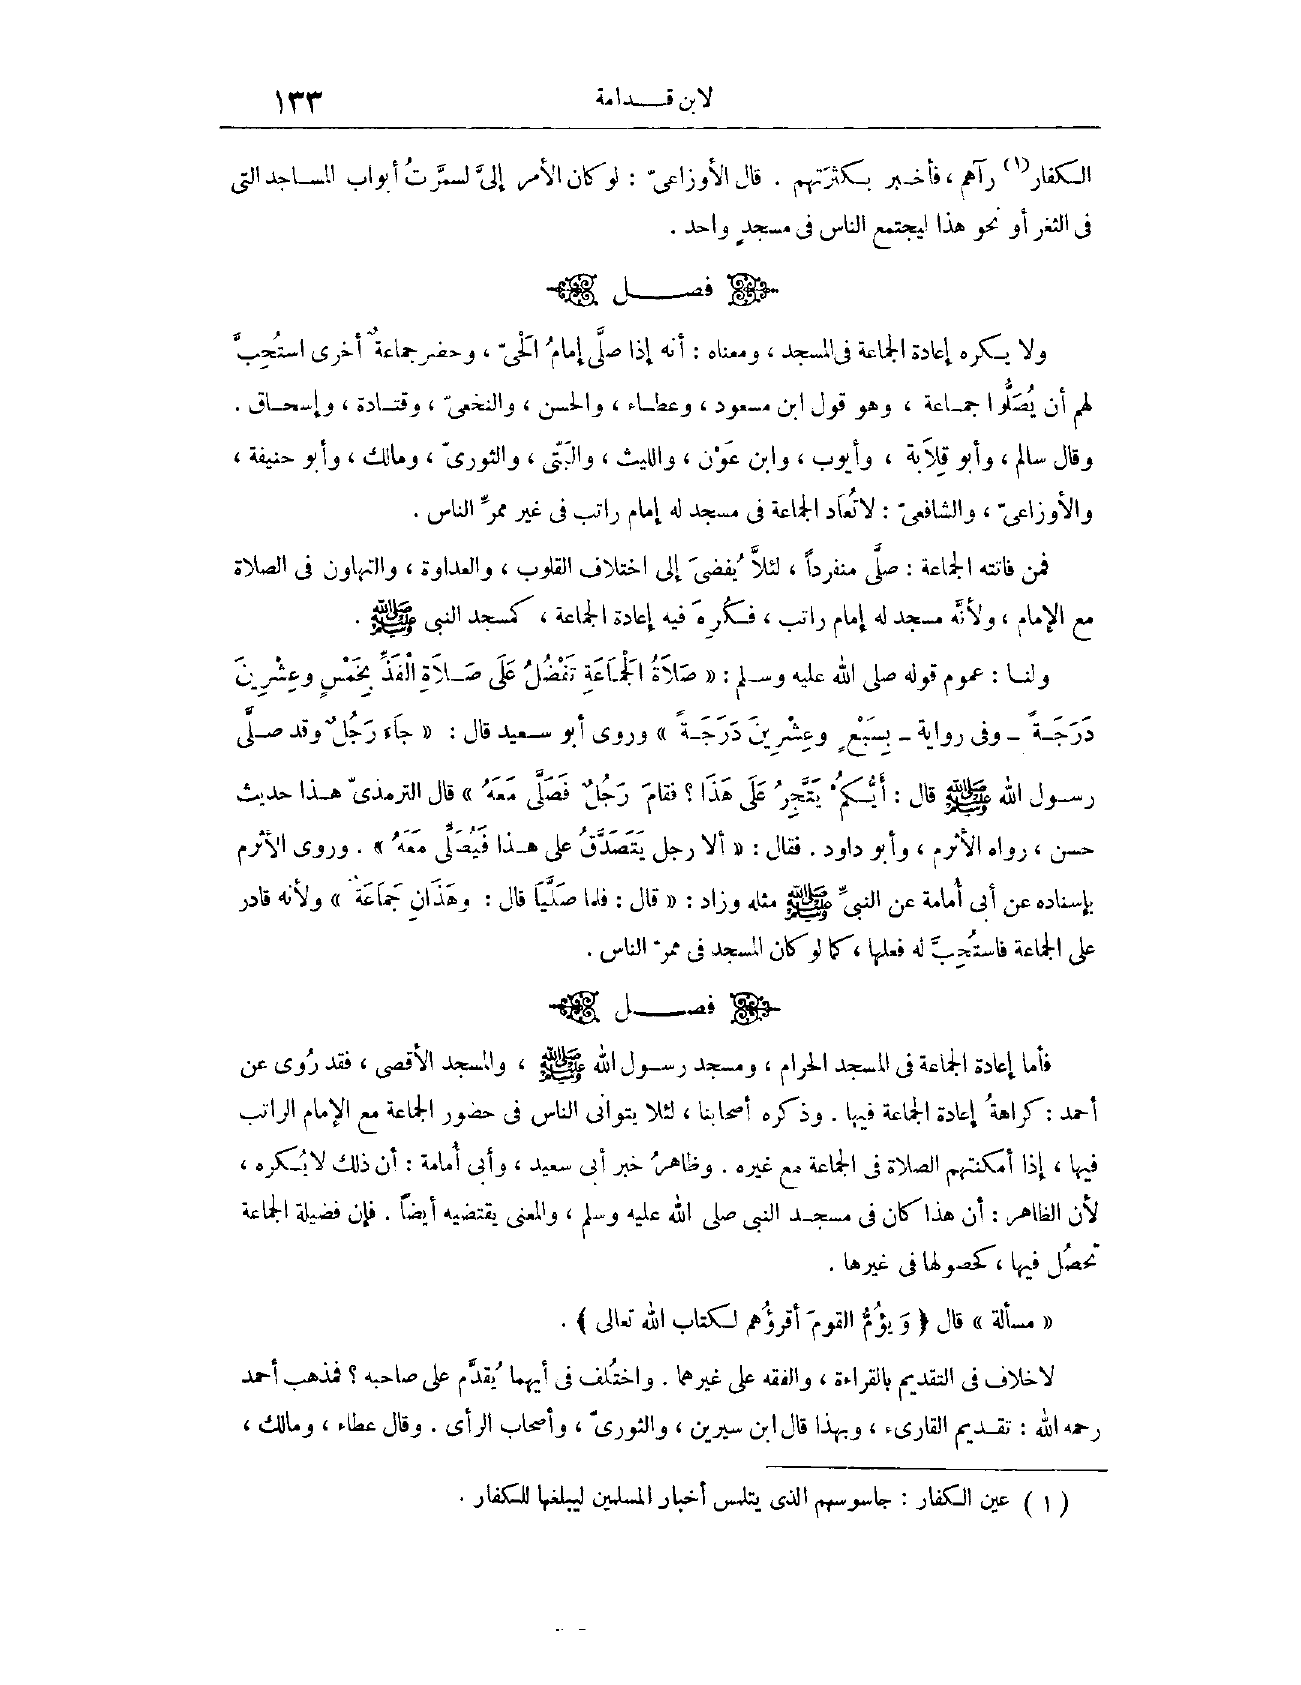 لابن قدامة ١٣٣
الكفار(١) رآهم ، فأخبر بكثرتهم . قال الأوزاعىّ : لو كان الأمر إلىَّ لسمَّرتُ أبواب المساجد التى
فى الثغر أو نحو هذا ليجتمع الناس فى مسجدٍ واحد .
فصل
ولا يكره إعادة الجماعة فى المسجد ، ومعناه : أنه إذا صلَّى إمامُ الحَىّ ، وحضر جماعةٌ أخرى استُحِبَّ
لهم أن يُصَلُّوا جماعة ، وهو قول ابن مسعود ، وعطاء ، والحسن ، والنخعىّ ، وقتادة ، وإسحاق .
وقال سالم ، وأبو قِلَابة ، وأيوب ، وابن عَوْن ، والليث ، والبَتّى ، والثورىّ ، ومالك ، وأبو حنيفة ،
والأوزاعىّ ، والشافعىّ : لا تُعاَد الجماعة فى مسجد له إمام راتب فى غير ممرِّ الناس .
فمن فاتته الجماعة : صلَّى منفرداً ، لئلاَّ يُفضىَ إلى اختلاف القلوب ، والعداوة ، والتهاون فى الصلاة
مع الإمام ، ولأنَّه مسجد له إمام راتب ، فكُرِهَ فيه إعادة الجماعة ، كمسجد النبى ﷺ .
ولنا : عموم قوله صلى الله عليه وسلم : « صَلَاَةُ الْجَمَاعَةِ تَفْضُلُ عَلَى صَلاَةِ الْفَذِّ بِخَمْسٍ وعِشْرِينَ
دَرَجَةً ــ وفى رواية ــ بِسَبْعٍ وعِشْرِينَ دَرَجَةً » وروى أبو سعيد قال : « جاَء رَجُلٌ وقد صلَّى
رسول الله ﷺ قال : أَيُّكمُ ْ يَتَّجِرُ عَلَى هَذَا ؟ فقامَ رَجُلٌ فَصَلَّى مَعَهُ » قال الترمذىّ هذا حديث
حسن ، رواه الأثرم ، وأبو داود . فقال : « ألا رجل يَتَصَدَّقُ على هذا فَيُصَلِّى مَعَهُ » . وروى الأثرم
بإسناده عن أبى أُمامة عن النبىِّ ﷺ مثله وزاد : « قال : فلما صَلَّيَا قال : وهَذَانِ جَمَاعَةٌ » ولأنه قادر
على الجماعة فاستُحِبَّ له فعلها ، كما لو كان المسجد فى ممرّ الناس .
فصل
فأما إعادة الجماعة فى المسجد الحرام ، ومسجد رسول الله ﷺ ، والمسجد الأقصى ، فقد رُوى عن
أحمد : كراهةُ إعادة الجماعة فيها . وذكره أصحابنا ، لئلا يتوانى الناس فى حضور الجماعة مع الإمام الراتب
فيها ، إذا أمكنتهم الصلاة فى الجماعة مع غيره . وظاهرُ خبر أبى سعيد ، وأبى أُمامة : أن ذلك لا يُكره ،
لأن الظاهر : أن هذا كان فى مسجد النبى صلى الله عليه وسلم ، والمعنى يقتضيه أيضاً . فإن فضيلة الجماعة
تحصُل فيها ، كحصولها فى غيرها .
« مسألة » قال ﴿ وَ يؤُمُّ القومَ أقرؤُهم لكتاب الله تعالى ﴾ .
لا خلاف فى التقديم بالقراءة ، والفقه على غيرهما . واختُلف فى أيهما يُقدَّم على صاحبه ؟ فمذهب أحمد
رحمه الله : تقديم القارىء ، وبهذا قال ابن سيرين ، والثورىّ ، وأصحاب الرأى . وقال عطاء ، ومالك ،
( ١ ) عين الكفار : جاسوسهم الذى يتلمس أخبار المسلمين ليبلغها للكفار .